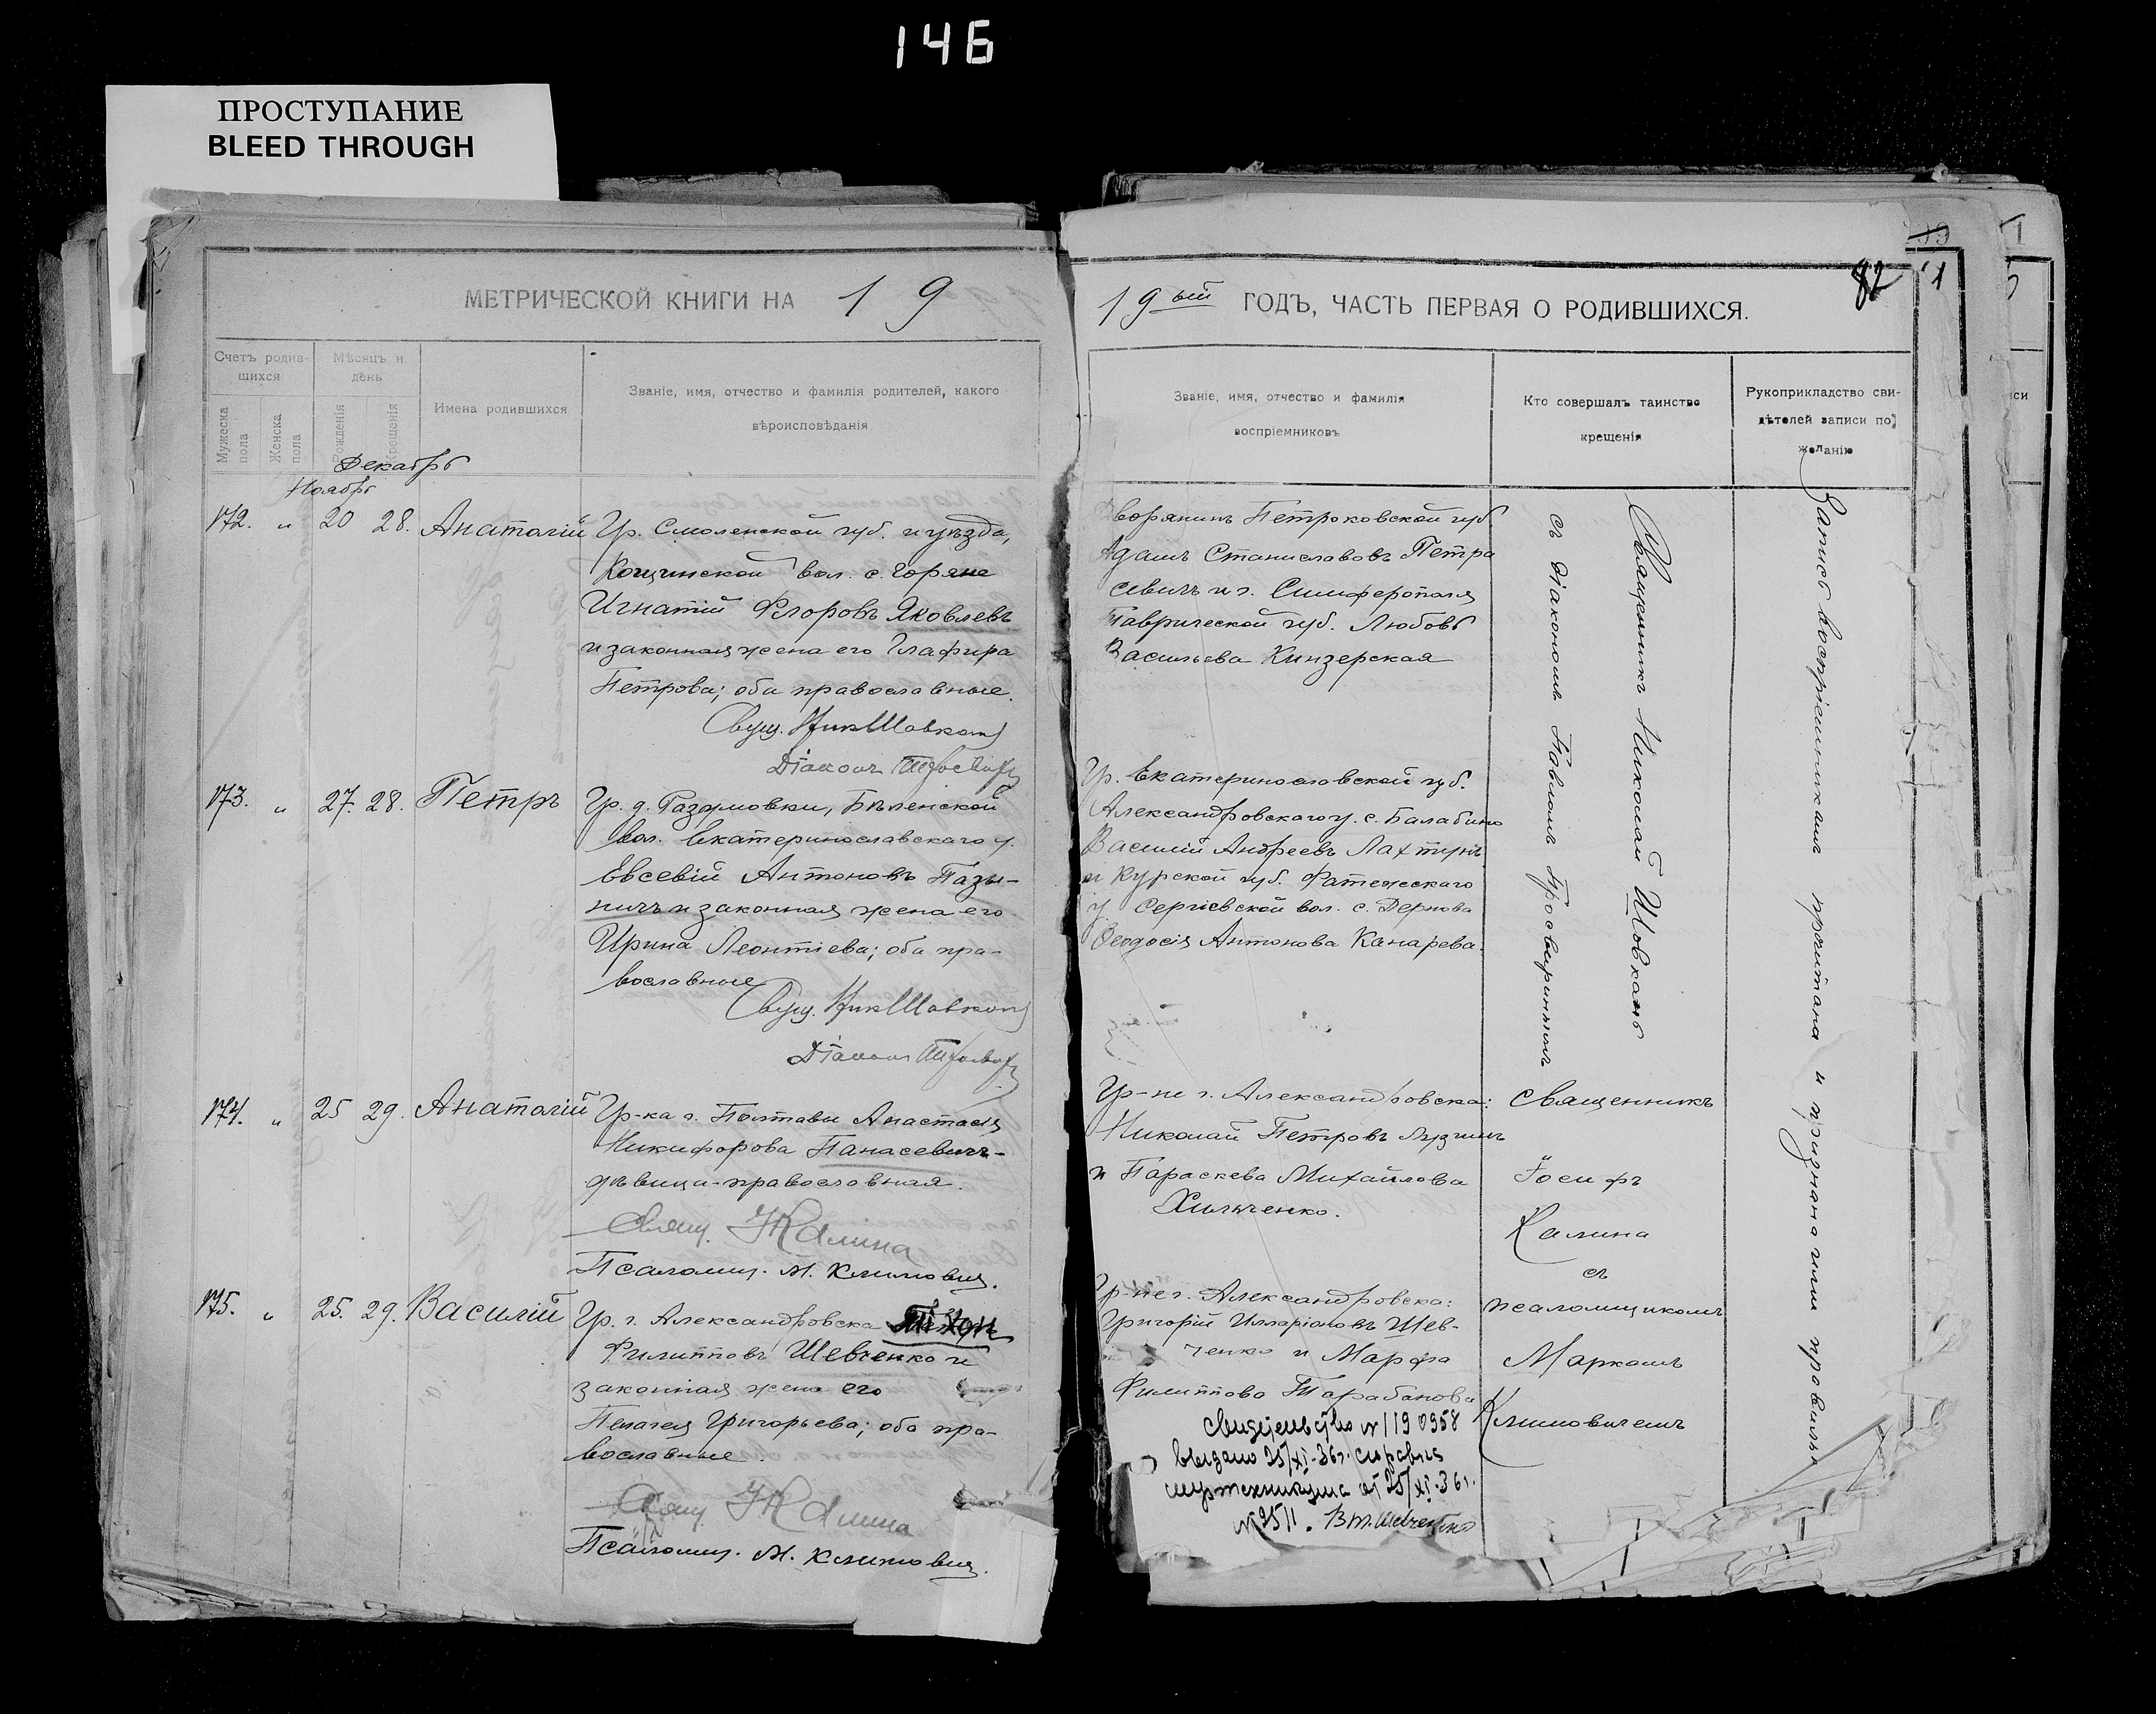 14Б
ПРОСТУПАНИЕ
BLEED THROUGH
МЕТРИЧЕСКОЙ КНИГИ НА 19
Счетъ родив-
шихся
Мѣсяцъ и
день
Мужеска
пола
Женска
пола
Рожденія
Крещенія
Имена родившихся
Званіе, имя, отчество и фамилія родителей, какого
вѣроисповѣданія
Декабрь
Ноябрь
172. " 20 28. Анатолій
Гр. Смоленской губ. и уѣзда,
Кощинской вол. с. Горяне
Игнатій Флоровъ Яковлевъ
и законная жена его Глафира
Петрова; оба православные.
Свящ. Ник Шовкопл
Діаконъ
173. " 27. 28. Петръ
Гр. д. Раздумовки, Бѣленской
вол. Екатеринославскаго у.
Евсевій Антоновъ Пазы-
ничъ и законная жена его
Ирина Леонтіева; оба пра-
вославные
Свящ. Ник Шовкопл
Діаконъ
174. " 25 29. Анатолій
Гр-ка г. Полтавы Анастасія
Никифорова Панасевичъ-
дѣвица-православная.
Свящ. І Калина
Псаломщ. М. Климович.
175. " 25. 29. Василій
Гр. г. Александровска Тихон
Филипповъ Шевченко и
законная жена его
Пелагея Григорьева; оба пра-
вославные.
Свящ. І Калина
Псаломщ. М. Климович.
19ый ГОДЪ, ЧАСТЬ ПЕРВАЯ О РОДИВШИХСЯ.
82
Званіе, имя, отчество и фамилія
воспріемниковъ
Кто совершалъ таинство
крещенія
Рукоприкладство сви-
дѣтелей записи по
желанію
Дворянинъ Петроковской губ.
Адамъ Станиславовъ Петра
севичъ и г. Симферополя
Таврической губ. Любовь
Васильева Кинзерская
Гр. Екатеринославской губ.
Александровскаго у. с. Балабино
Василій Андреевъ
и Курской губ. Фатежскаго
у. Сергіевской вол. с. Дернова
Ѳеодосія Антонова Канарева.
Священникъ Николай Шовкопл
съ діакономъ Павломъ Просвиринымъ
Запись воспріемникамъ прочитана и признана ими правильн
Гр-не г. Александровска:
Николай Петровъ
и Параскева Михайлова
Хильченко.
Священникъ
Іосифъ
Калина
съ
псаломщикомъ
Маркомъ
Климовичемъ
Гр-не г. Александровска:
Григорій Илларіоновъ Шев-
ченко и Марфа
Филиппова Тарабанова
свидетельство № 119 0958
выдано 25/XI-36г. справка
от 25/XI-36г.
№ 2511. В.Т. Шевченко